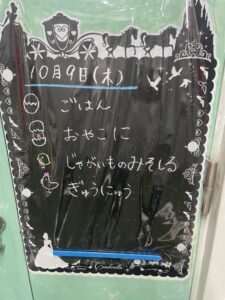 10月9日(木)
ごはん
おやこに
じゃがいものみそしる
ぎゅうにゅう